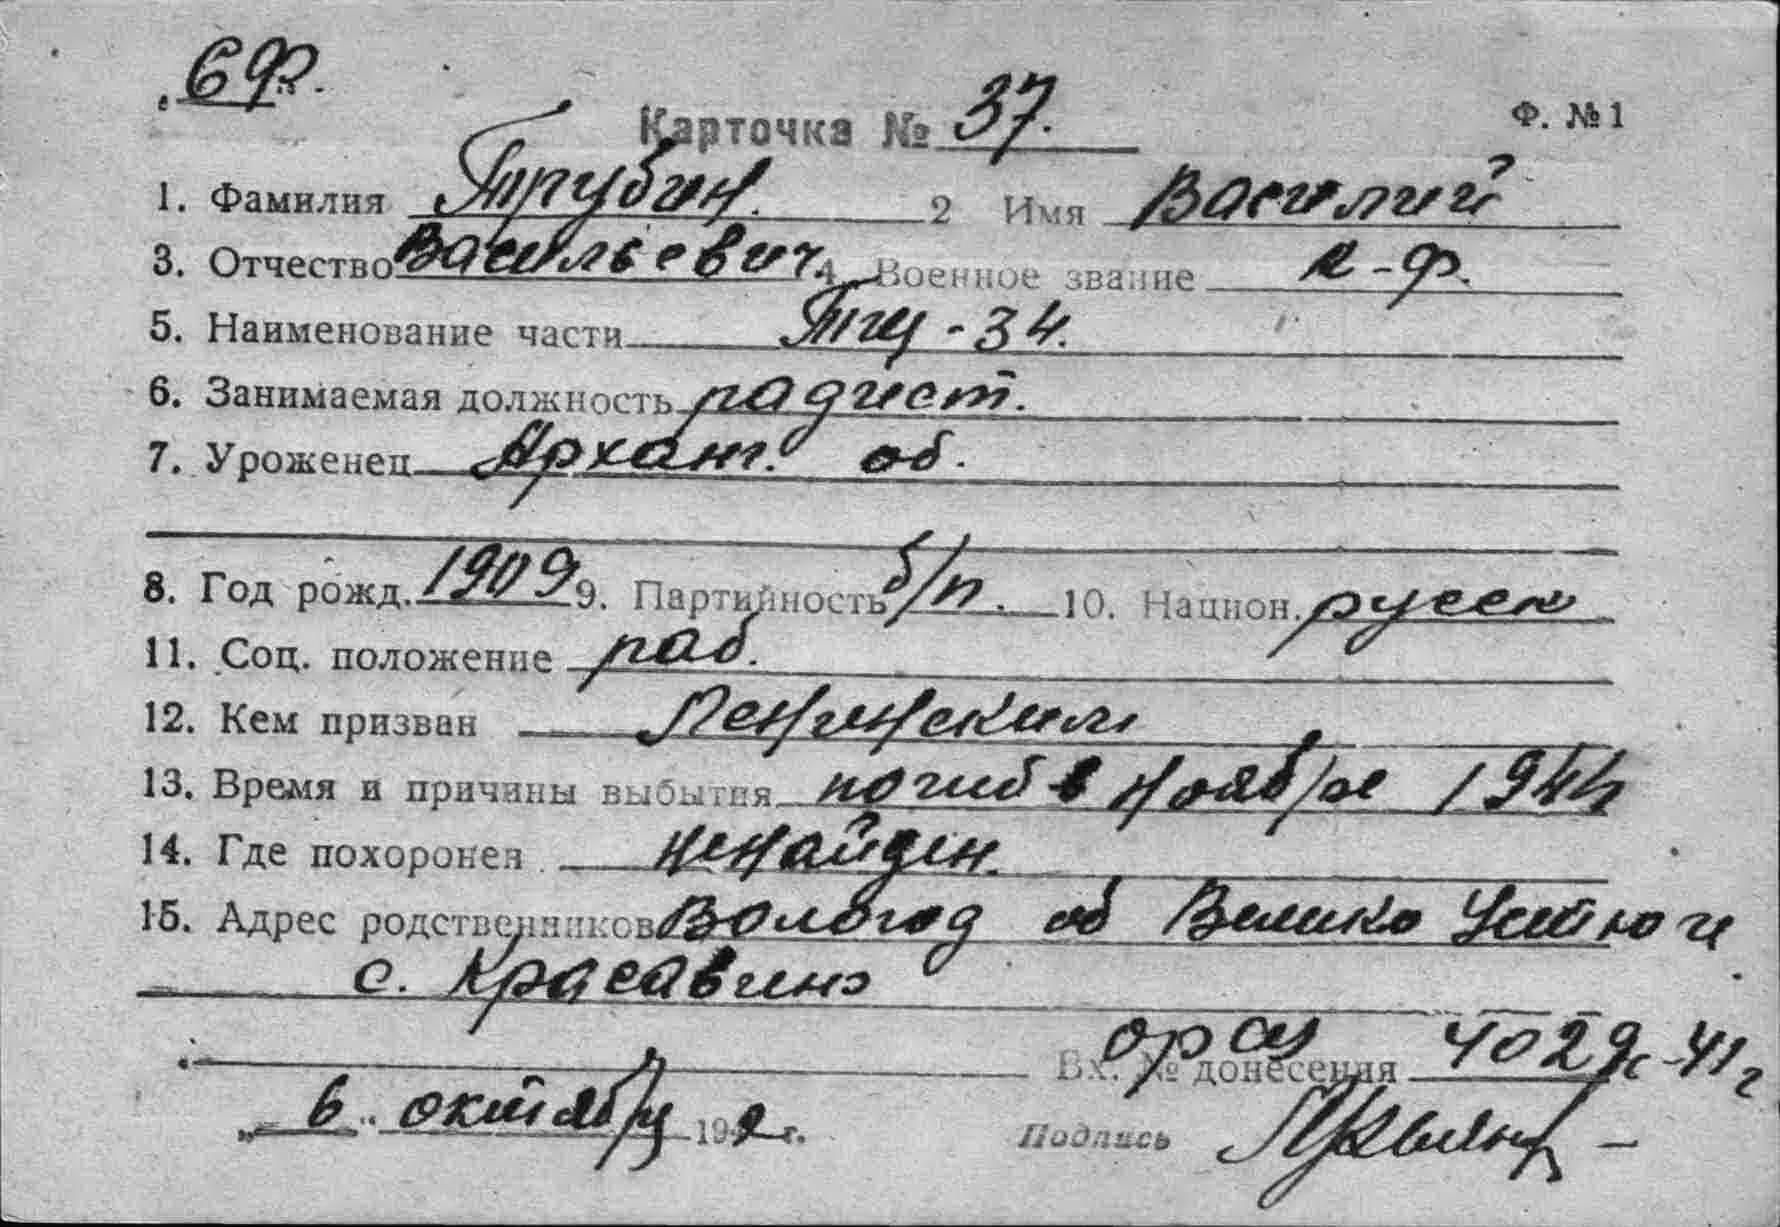 6 Ф.
Карточка № 37.
Ф. № 1
1. Фамилия Трубин. 2 Имя Василий
3. Отчество Васильевич 4 Военное звание к-ф.
5. Наименование части Тщ-34.
6. Занимаемая должность радист.
7. Уроженец Арханг. об.
8. Год рожд. 1909 9. Партийность б/п. 10. Национ. русск
11. Соц. положение раб.
12. Кем призван Ленинским
13. Время и причины выбытия погиб в ноябре 1944
14. Где похоронен ненайден.
15. Адрес родственников Вологод об Велико Устюги
с. Красавино
Вх. № донесения 4029с-41г
„ 6 " октября 1942 г. Подпись